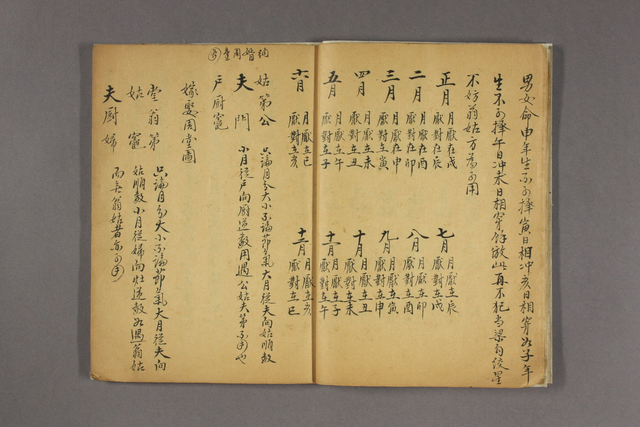 男女命申年生不可擇寅日相冲亥日相穿如子年
生不可擇午日冲未日相穿餘倣此再不犯
不妨翁姑方為可用
正月 月厭在戌 厭對在辰
二月 月厭在酉 厭對在卯
三月 月厭在申 厭對在寅
四月 月厭在未 厭對在丑
五月 月厭在午 厭對在子
六月 月厭在巳 厭對在亥
七月 月厭在辰 厭對在戌
八月 月厭在卯 厭對在酉
九月 月厭在寅 厭對在申
十月 月厭在丑 厭對在未
十一月 月厭在子 厭對在午
十二月 月厭在亥 厭對在巳
姑 第 公
夫 門
戶 廚 竈
只論月分大小不論節氣大月從夫向姑順數
小月從戶向廚逆數用過公姑夫第不可也
嫁娶周堂圖
堂 翁 第
姑 竈
夫 廚 婦
只論月分大小不論節氣大月從夫向
姑順數小月從婦向灶逆數如遇翁姑
而無翁姑者亦可